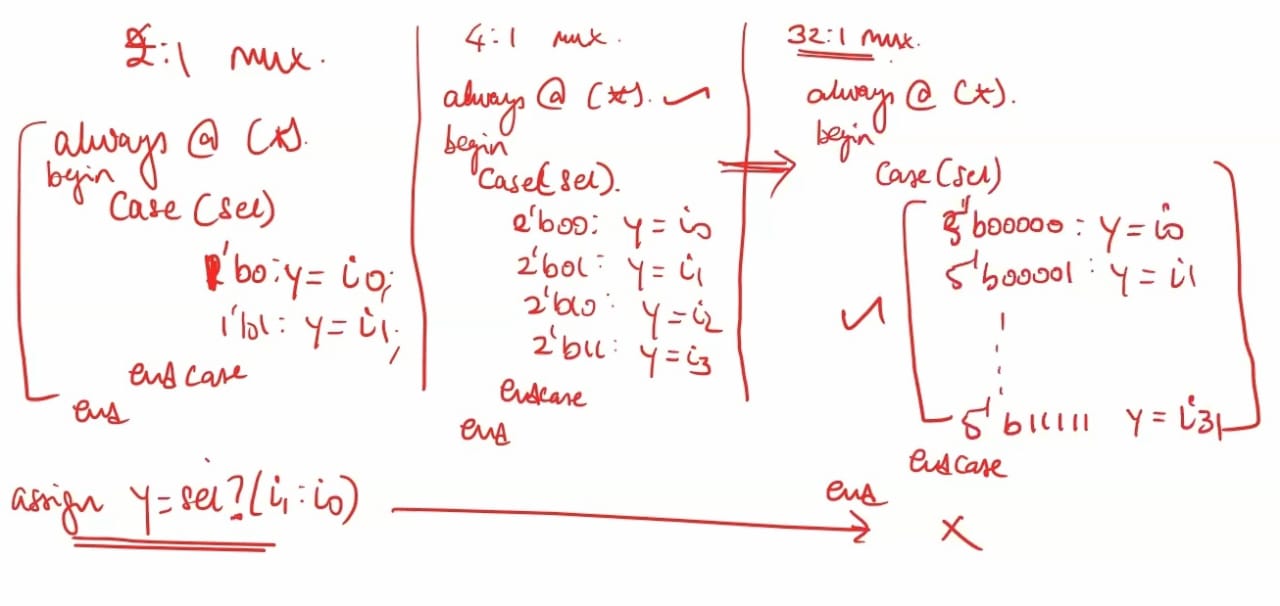 2:1 mux.
always @ (*).
begin
case (sel)
1'b0: y = i0;
1'b1: y = i1;
endcase
end
assign y = sel? (i1 : i0)
4:1 mux.
always @ (*).
begin
case (sel).
2'b00: y = i0
2'b01: y = i1
2'b10: y = i2
2'b11: y = i3
endcase
end
32:1 mux.
always @ (*).
begin
case (sel)
5'b00000 : y = i0
5'b00001 : y = i1
5'b11111 y = i31
endcase
end